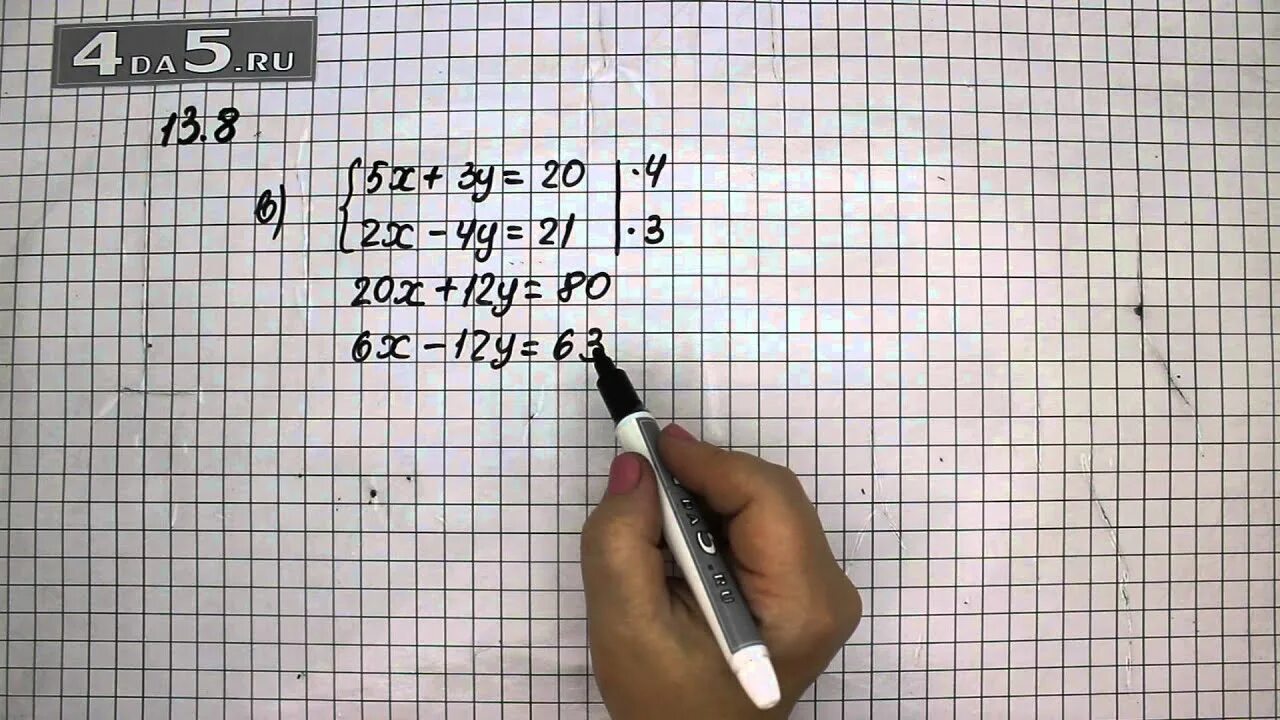 4DA5.RU
13.8
в) {5x + 3y = 20 | · 4
2x − 4y = 21 | · 3
20x + 12y = 80
6x − 12y = 63